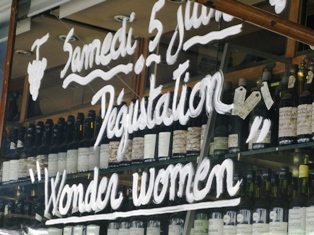 Samedi 5 juin
Dégustation
"Wonder women"